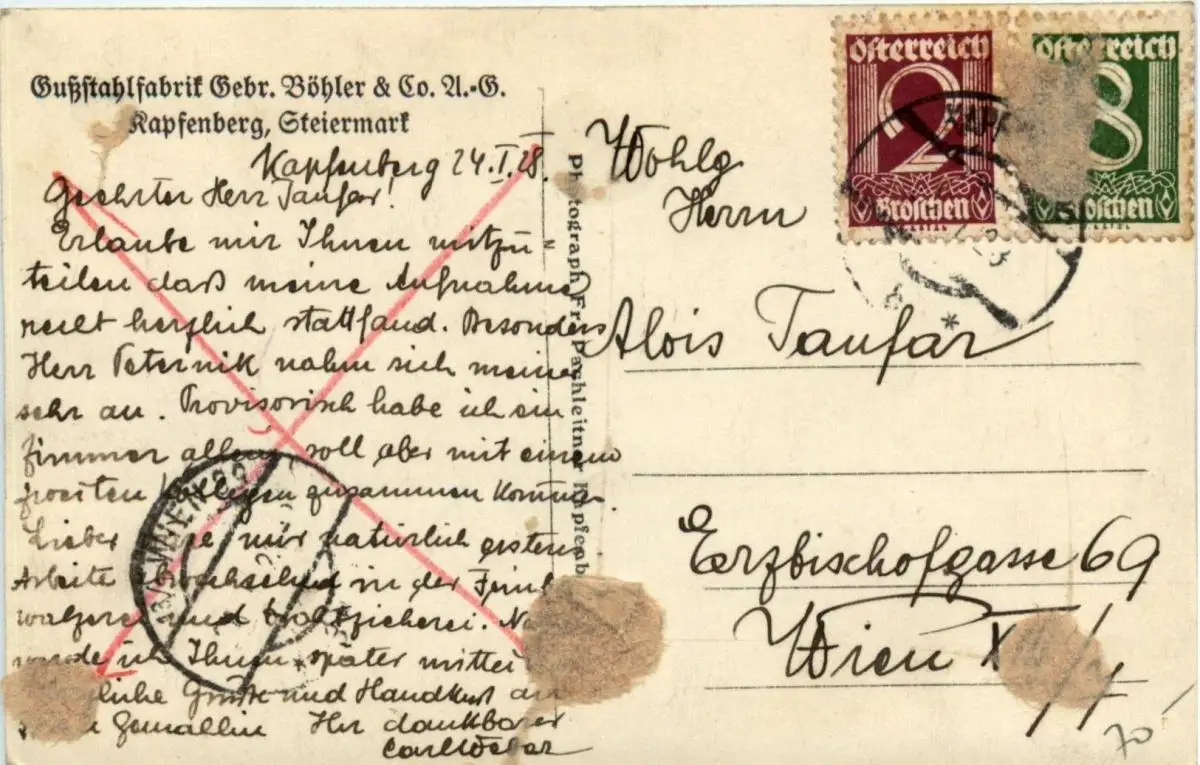 Gußstahlfabrik Gebr. Böhler & Co. A.-G.
Kapfenberg, Steiermark
Kapfenberg 24.I.28.
Geehrter Herr Taufar!
Erlaube mir Ihnen mitzu
teilen daß meine Aufnahme
recht herzlich stattfand. Besonders
Herr Peternik nahm sich meiner
sehr an. Provisorisch habe ich ein
Zimmer allein, soll aber mit einem
zusammen
Lieber mir natürlich erstens
Arbeite in der
und Drahtzieherei.
werde ich Ihnen später mittei
liche Grüße und Handkuß an
Gemahlin Ihr dankbarer
Carl
Photograph Fr. Bachleitner Kapfenb
Wohlg
Herrn
Alois Taufar
Erzbischofgasse 69
Wien
österreich
2
Groschen
österreich
8
Groschen
KAPF
70